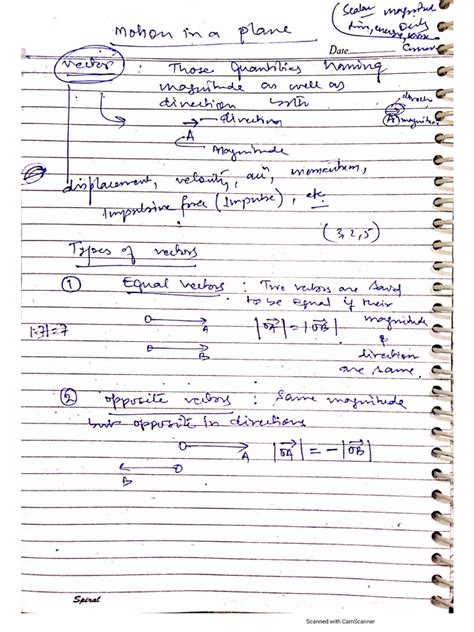 Motion in a plane
(Scalar magnitude
time, energy,
Date
Vector : Those Quantities having
magnitude as well as
direction both
→ direction
A
Magnitude
direction
A magnitude
displacement, velocity, acc, momentum,
Impulsive force (Impulse), etc
(3, 2, 5)
Types of vectors
① Equal vectors : Two vectors are said
to be equal if their
magnitude
&
direction
are same,
O A |OA| = |OB|
O B
|-7|=7
② opposite vectors : Same magnitude
but opposite in directions
O A |OA| = -|OB|
B O
Spiral
Scanned with CamScanner